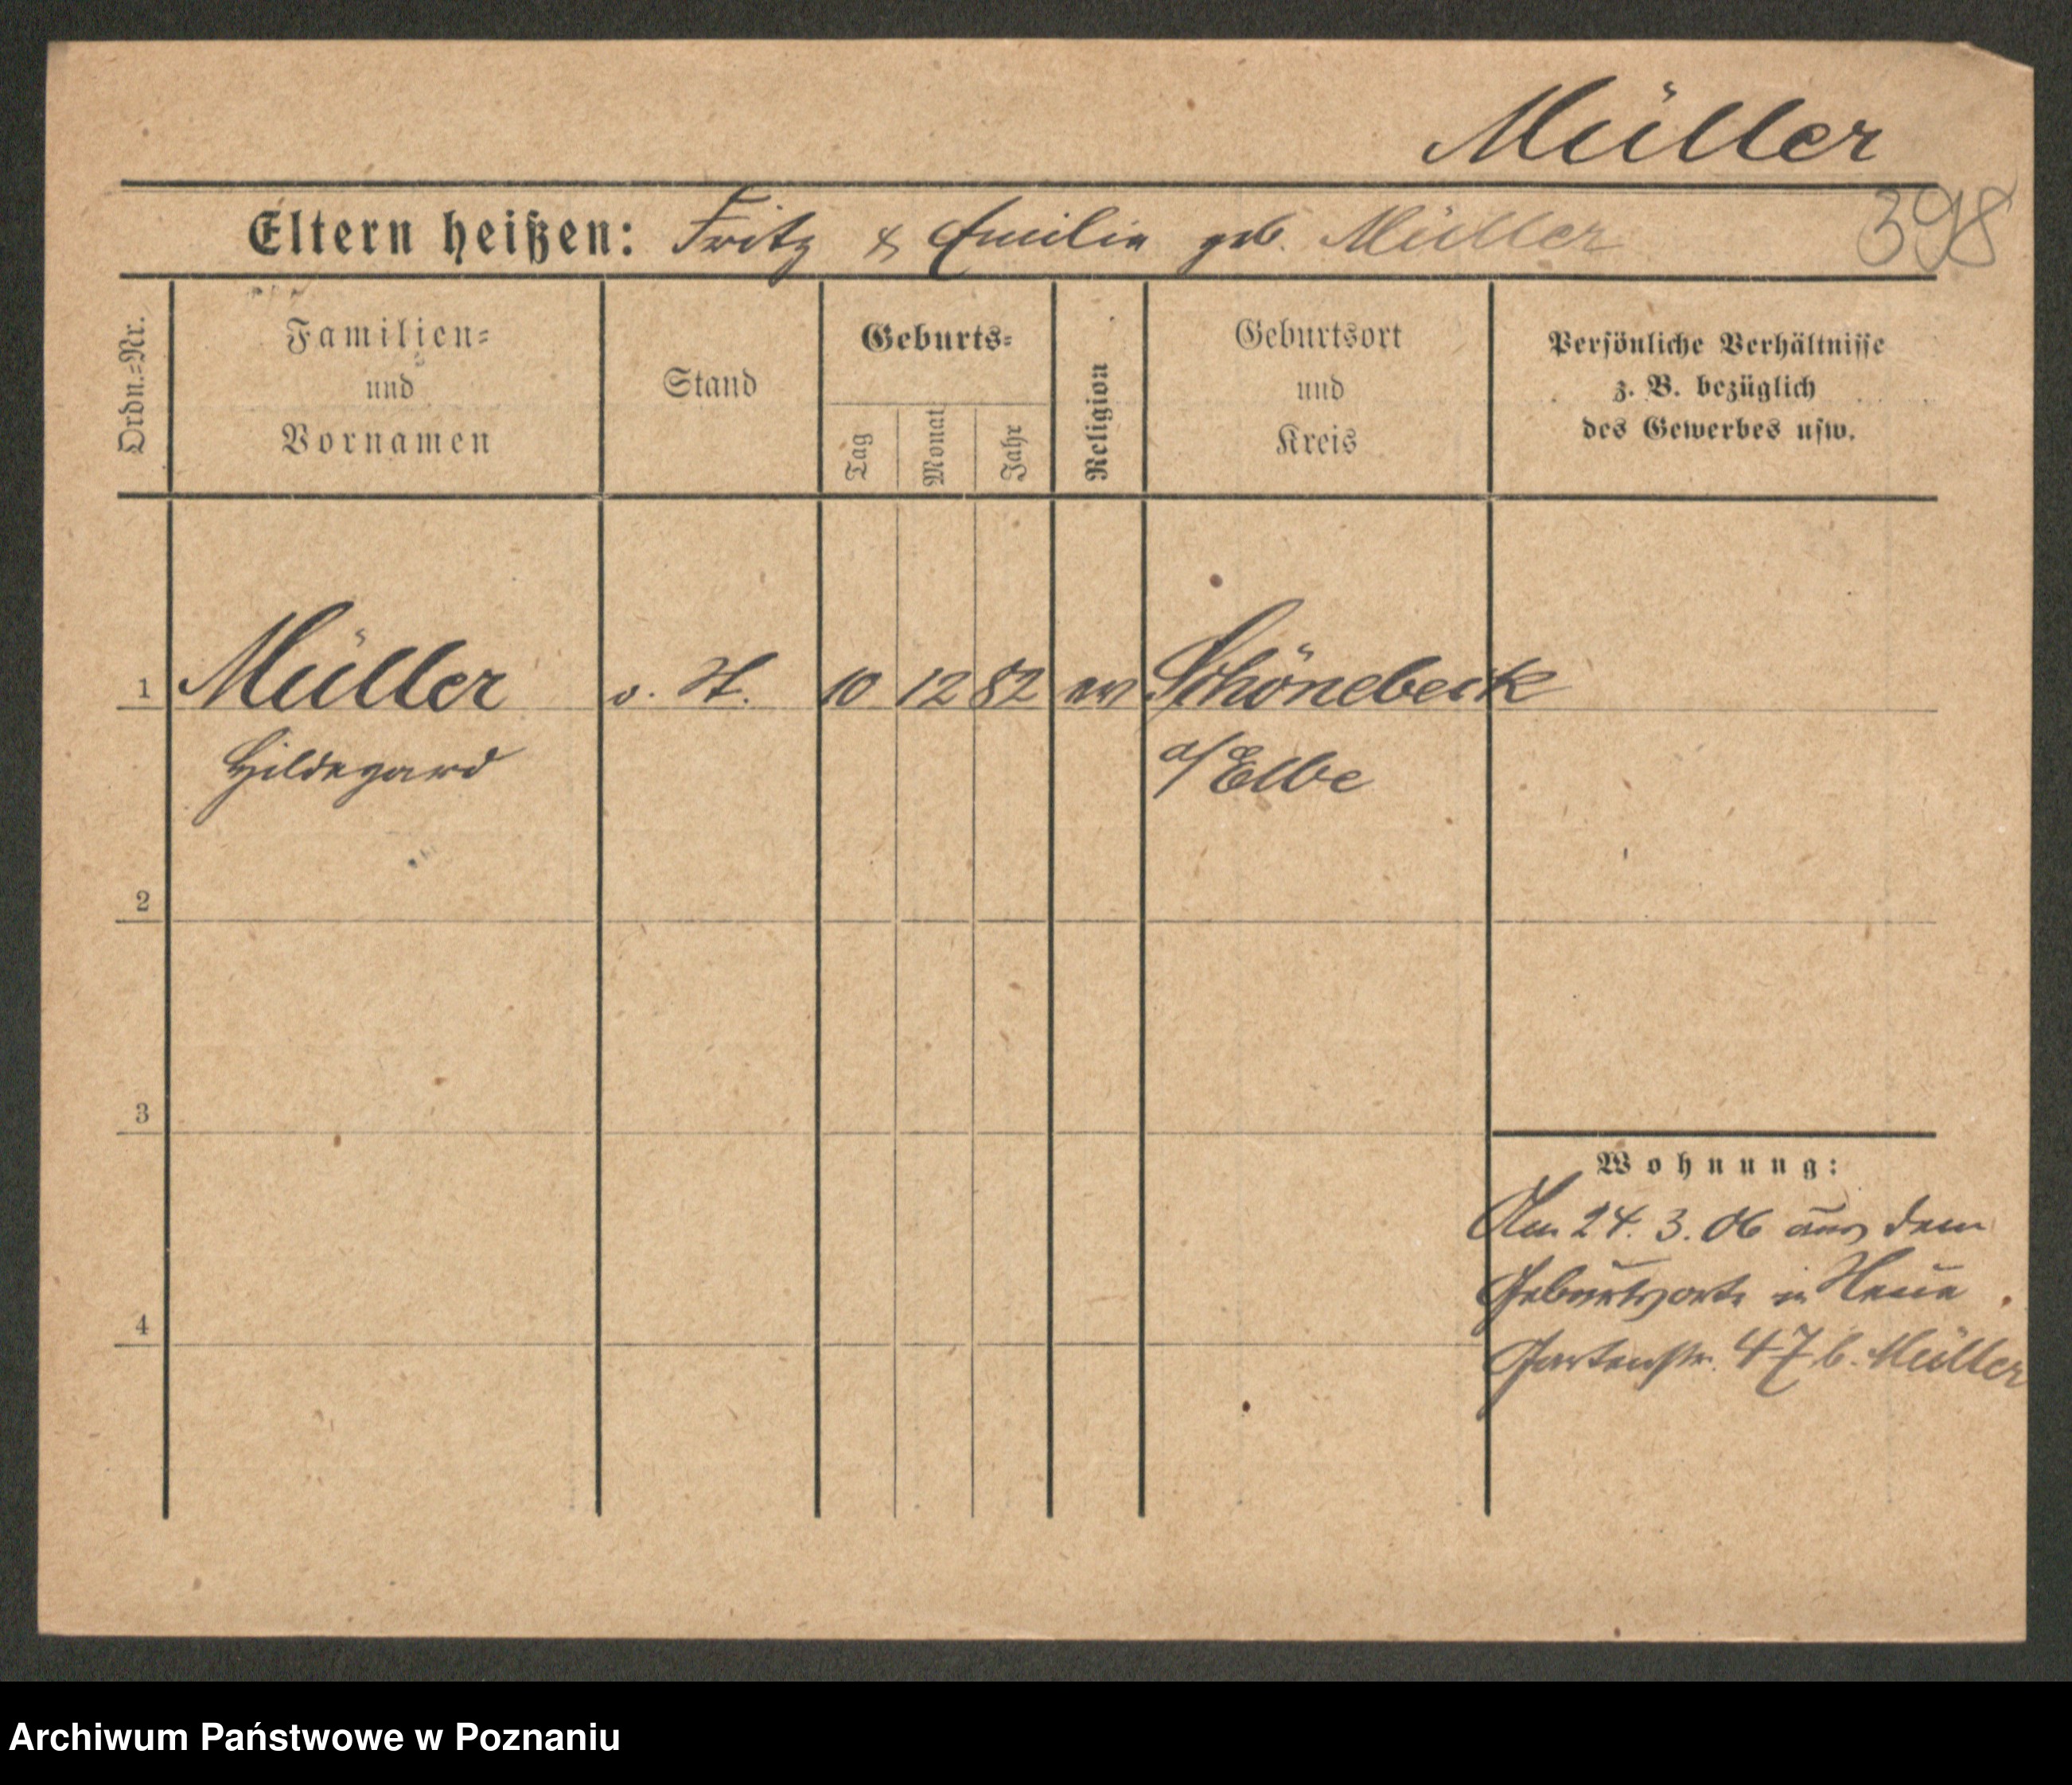 Müller
398
Eltern heißen: Fritz & Emilie geb. Müller
Ordn.-Nr.
Familien-
und
Vornamen
Stand
Geburts-
Tag
Monat
Jahr
Religion
Geburtsort
und
Kreis
Persönliche Verhältnisse
z. B. bezüglich
des Gewerbes usw.
1 Müller o. St. 10 12 82 ev Schönebeck
Hildegard a/Elbe
2
3
Wohnung:
Am 24. 3. 06 aus dem
Geburtsorte in Neue
4
Gartenstr. 47 b. Müller
Archiwum Państwowe w Poznaniu